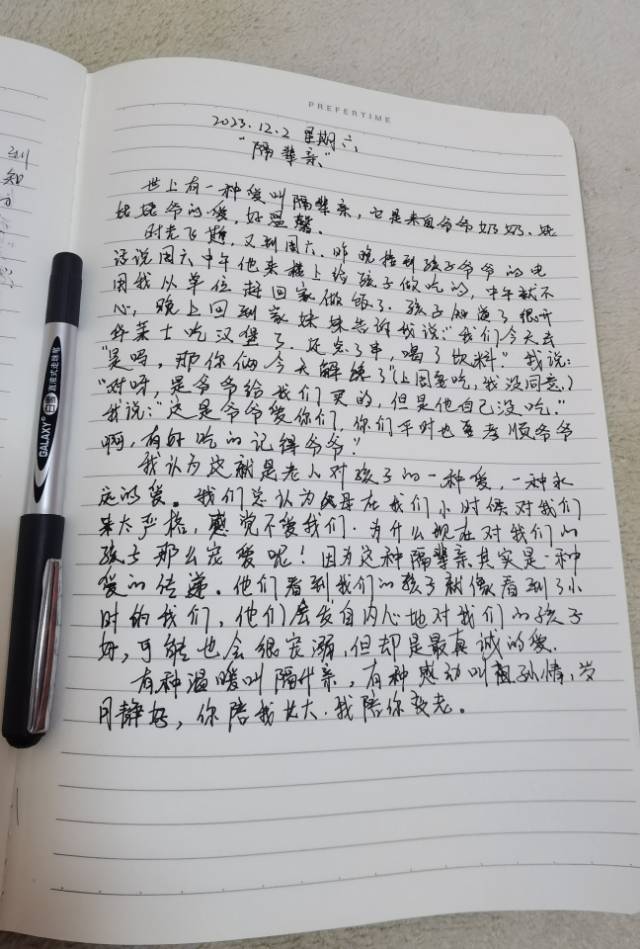 PREFERTIME
2023.12.2 星期六
“隔辈亲”
世上有一种爱叫隔辈亲，它是来自爷爷奶奶、姥
姥姥爷的爱，好温馨。
时光飞逝，又到周六，昨晚接到孩子爷爷的电
话说周六中午他来楼上给孩子做吃的，中午就不
用我从单位赶回家做饭了。孩子知道了很开
心，晚上回到家妹妹告诉我说：“我们今天去
华莱士吃汉堡了，还点了串，喝了饮料”。我说：
“是吗，那你俩今天解馋了”（上周要吃，我没同意。）
“对呀，是爷爷给我们买的，但是他自己没吃。”
我说：“这是爷爷爱你们，你们平时也要孝顺爷爷
啊，有好吃的记得爷爷？”
我认为这就是老人对孩子的一种爱，一种永
远的爱。我们总认为父母在我们小时候对我们
来太严格，感觉不爱我们，为什么现在对我们的
孩子那么宠爱呢！因为这种隔辈亲其实是一种
爱的传递。他们看到我们的孩子就像看到了小
时的我们，他们会发自内心地对我们的孩子
好，可能也会很宠溺，但却是最真诚的爱。
有种温暖叫隔代亲，有种感动叫祖孙情，岁
月静好，你陪我长大，我陪你变老。
到
知
GALAXY 白雪 直液式走珠笔